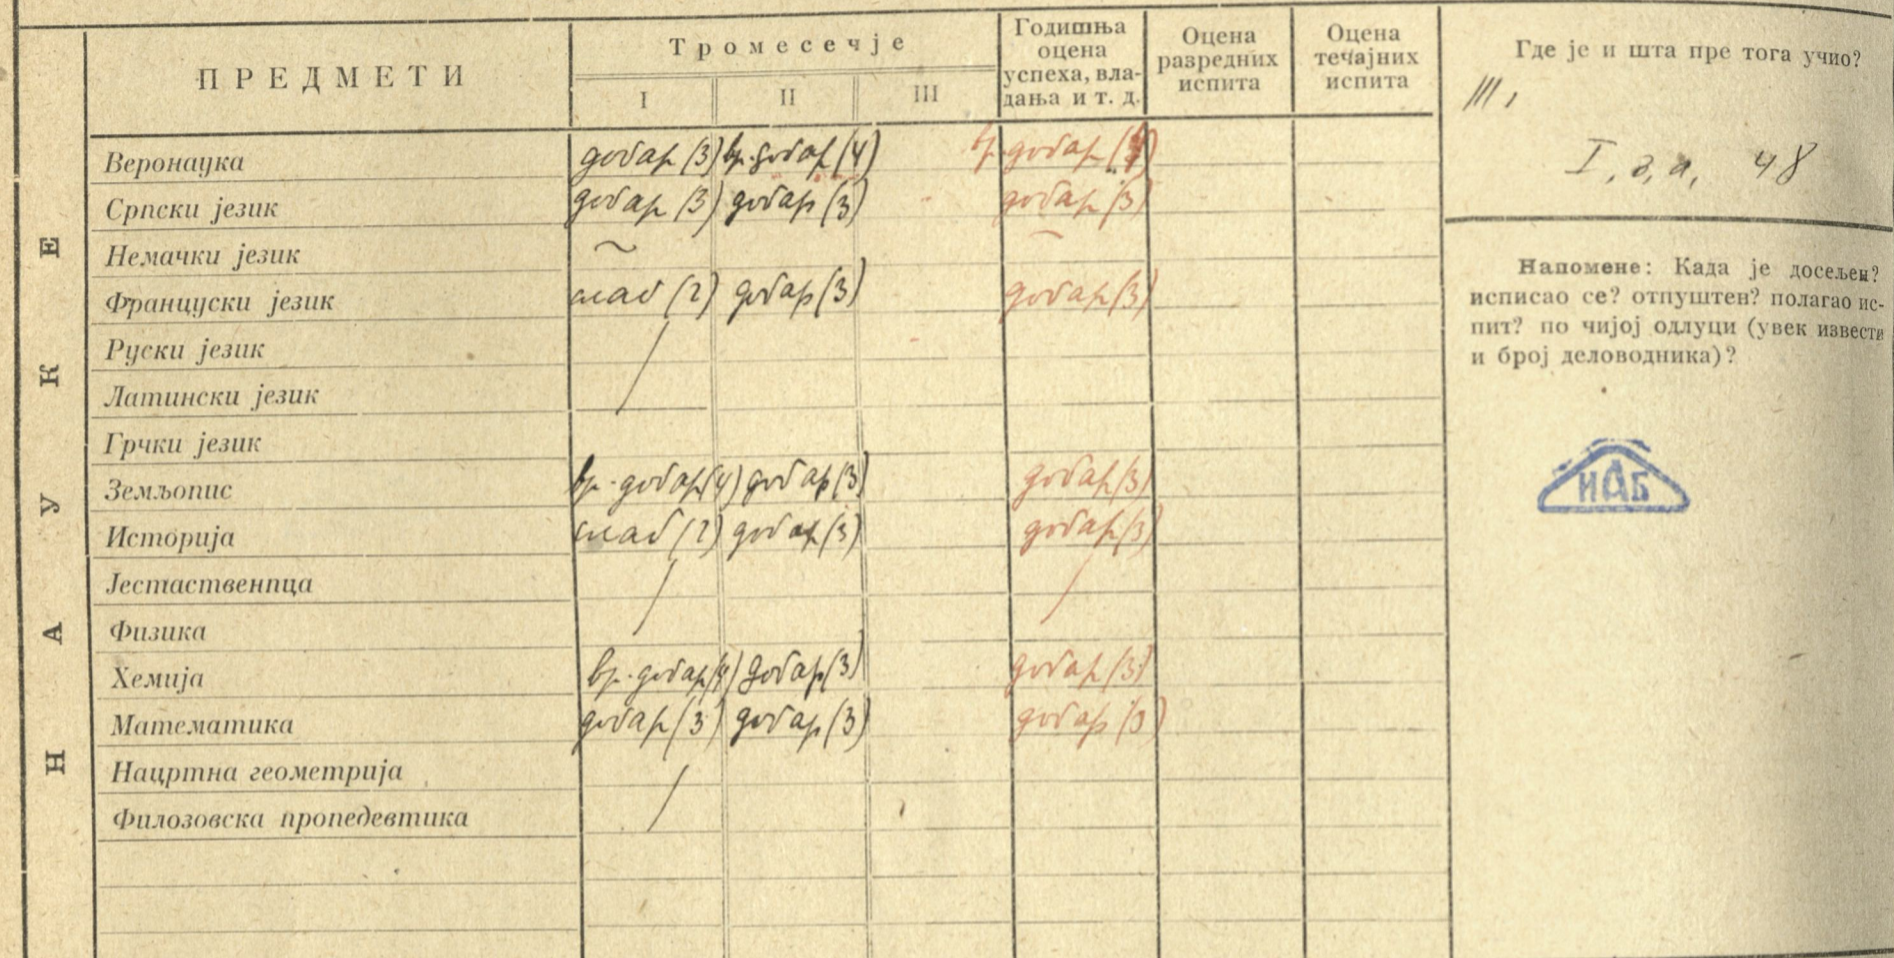 НАУКЕ
ПРЕДМЕТИ
Тромесечје
I II III
Годишња оцена успеха, вла-дања и т. д.
Оцена разредних испита
Оцена течајних испита
Веронаука добар (3) вр. добар (4) вр. добар (4)
Српски језик добар (3) добар (3) добар (3)
Немачки језик ~ ~
Француски језик слаб (2) добар (3) добар (3)
Руски језик /
Латински језик
Грчки језик
Земљопис вр. добар (4) добар (3) добар (3)
Историја слаб (2) добар (3) добар (3)
Јестаственица / /
Физика
Хемија вр. добар (4) добар (3) добар (3)
Математика добар (3) добар (3) добар (3)
Нацртна геометрија /
Филозовска пропедевтика
Где је и шта пре тога учио?
III,
I, а, 48
Напомене: Када је досељен?
исписао се? отпуштен? полагао ис-
пит? по чијој одлуци (увек извести
и број деловодника)?
ИАБ